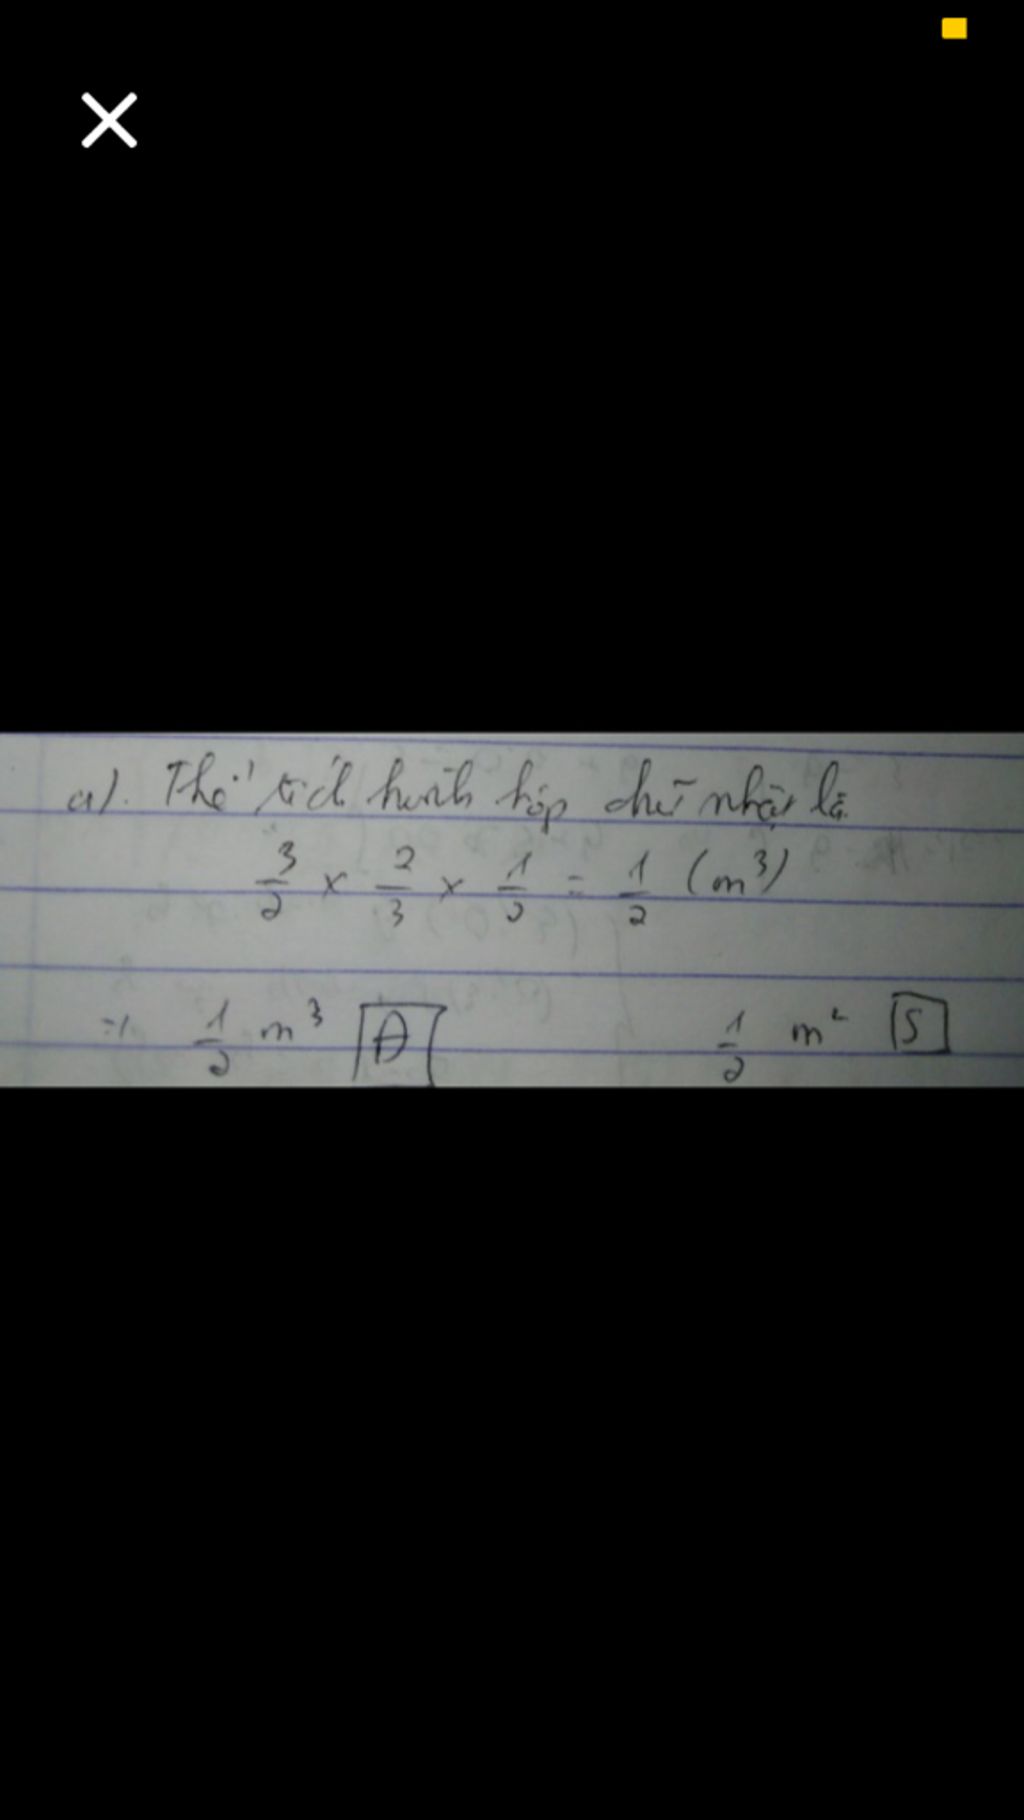 a). Thể tích hình hộp chữ nhật là
3/2 x 2/3 x 1/2 = 1/2 (m³)
=> 1/2 m³ Đ 1/2 m² S